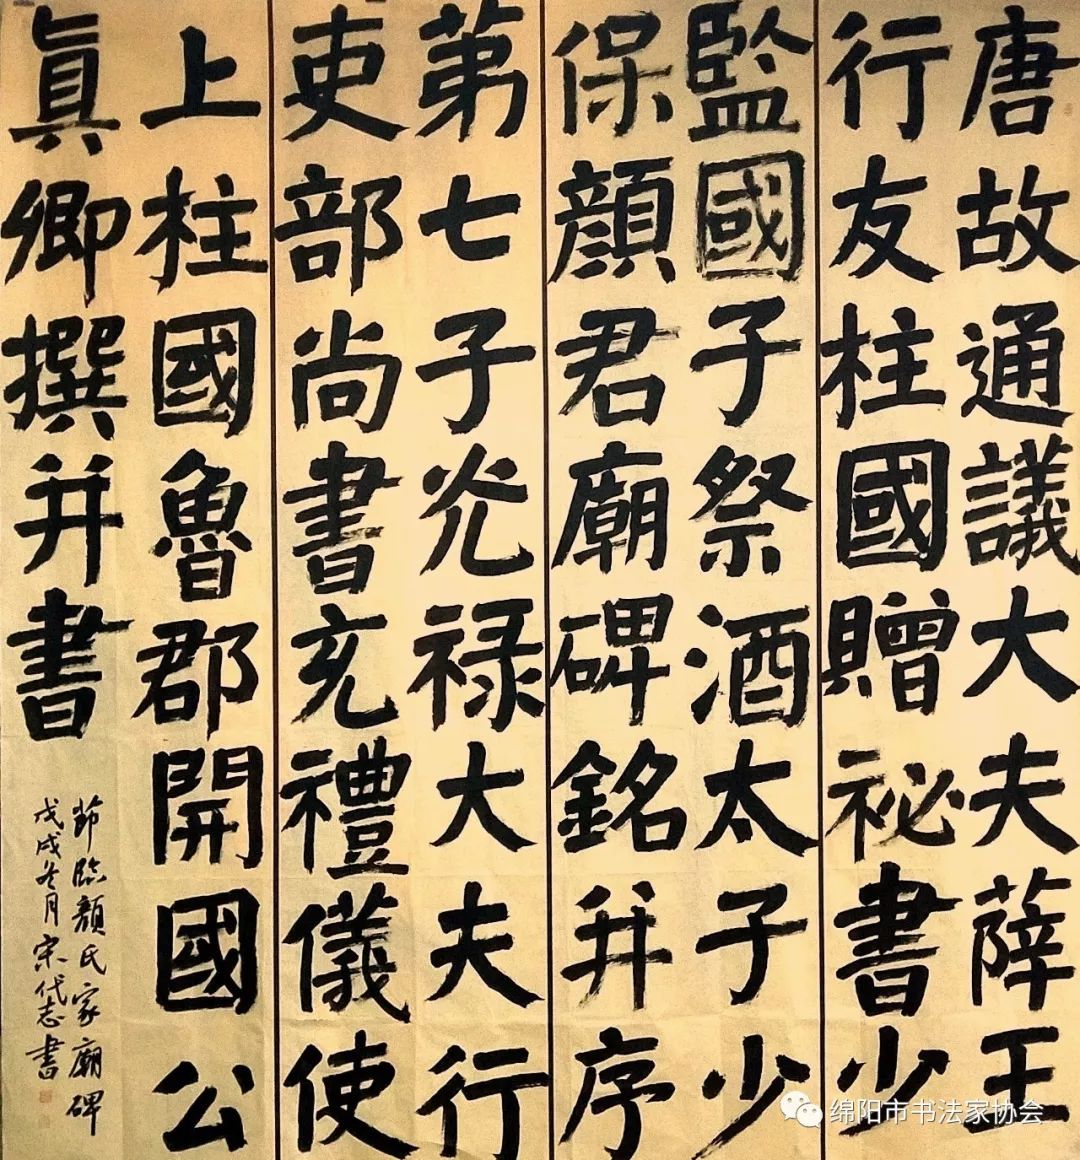 唐故通議大夫薛王
行友柱國贈祕書少
監國子祭酒太子少
保顔君廟碑銘并序
第七子光禄大夫行
吏部尚書充禮儀使
上柱國魯郡開國公
眞卿撰并書
節臨顏氏家廟碑
戊戌冬月宋代志書
绵阳市书法家协会